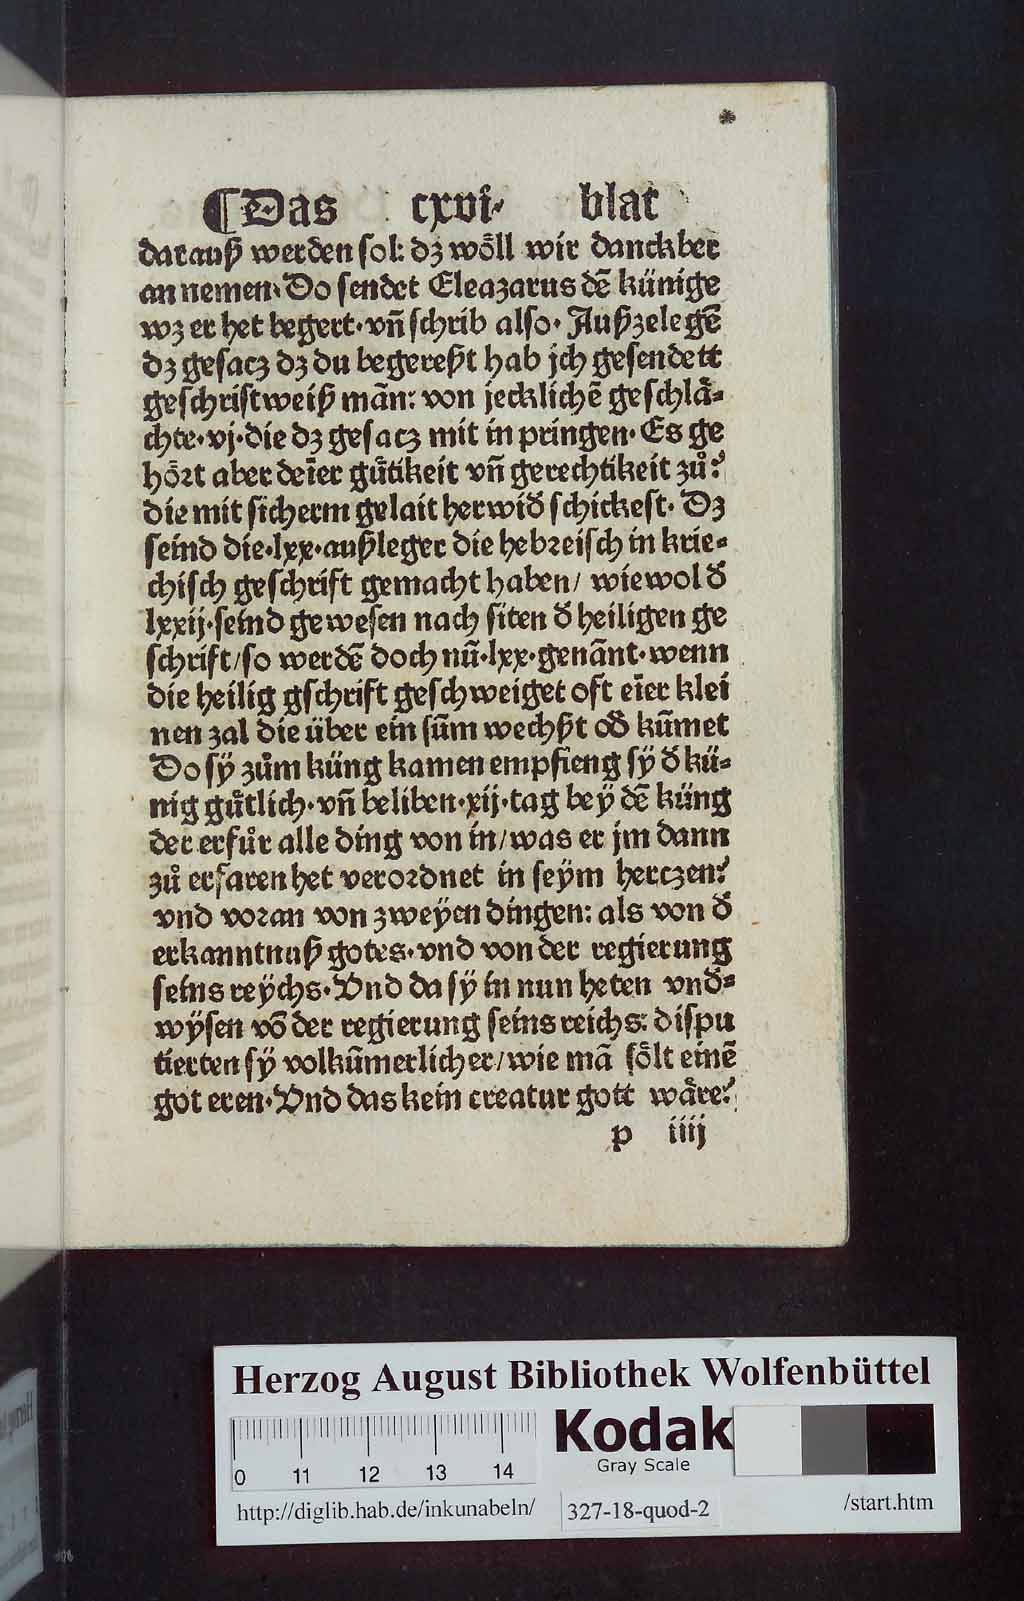 ¶Das cxvi· blat
darauß werden sol: dz wöll wir danckber
an nemen· Do sendet Eleazarus dē künige
wz er het begert· vn̄ schrib also· Außzelegē
dz gesacz dz du begereßt hab jch gesendett
geschristweiß mān: von jecklichē geschlä⸗
chte· vj· die dz gesacz mit in pringen· Es ge
hört aber deīer gůtikeit vn̄ gerechtikeit zů?
die mit sicherm gelait herwid̄ schickest· Dz
seind die· lxx· außleger die hebreisch in krie⸗
chisch geschrift gemacht haben/ wiewol d̄
lxxij· seind gewesen nach siten d̄ heiligen ge
schrift/ so werdē doch nū· lxx· genānt· wenn
die heilig gschrift geschweiget oft eīer klei
nen zal die über ein sūm wechßt od̄ kūmet
Do sÿ zům küng kamen empfieng sÿ d̄ kü⸗
nig gůtlich· vn̄ beliben· xij· tag beÿ dē küng
der erfůr alle ding von in/ was er jm dann
zů erfaren het verordnet in seÿm herczen?
vnd voran von zweÿen dingen: als von d̄
erkanntnuß gotes· vnd von der regierung
seins reÿchs· Vnd da sÿ in nun heten vnd̄⸗
wÿsen vō der regierung seins reichs: dispu
tierten sÿ volkūmerlicher/ wie mā sölt einē
got eren· Vnd das kein creatur gott wäre?
p iiij
Herzog August Bibliothek Wolfenbüttel
0 11 12 13 14
Kodak
Gray Scale
http://diglib.hab.de/inkunabeln/ 327-18-quod-2 /start.htm